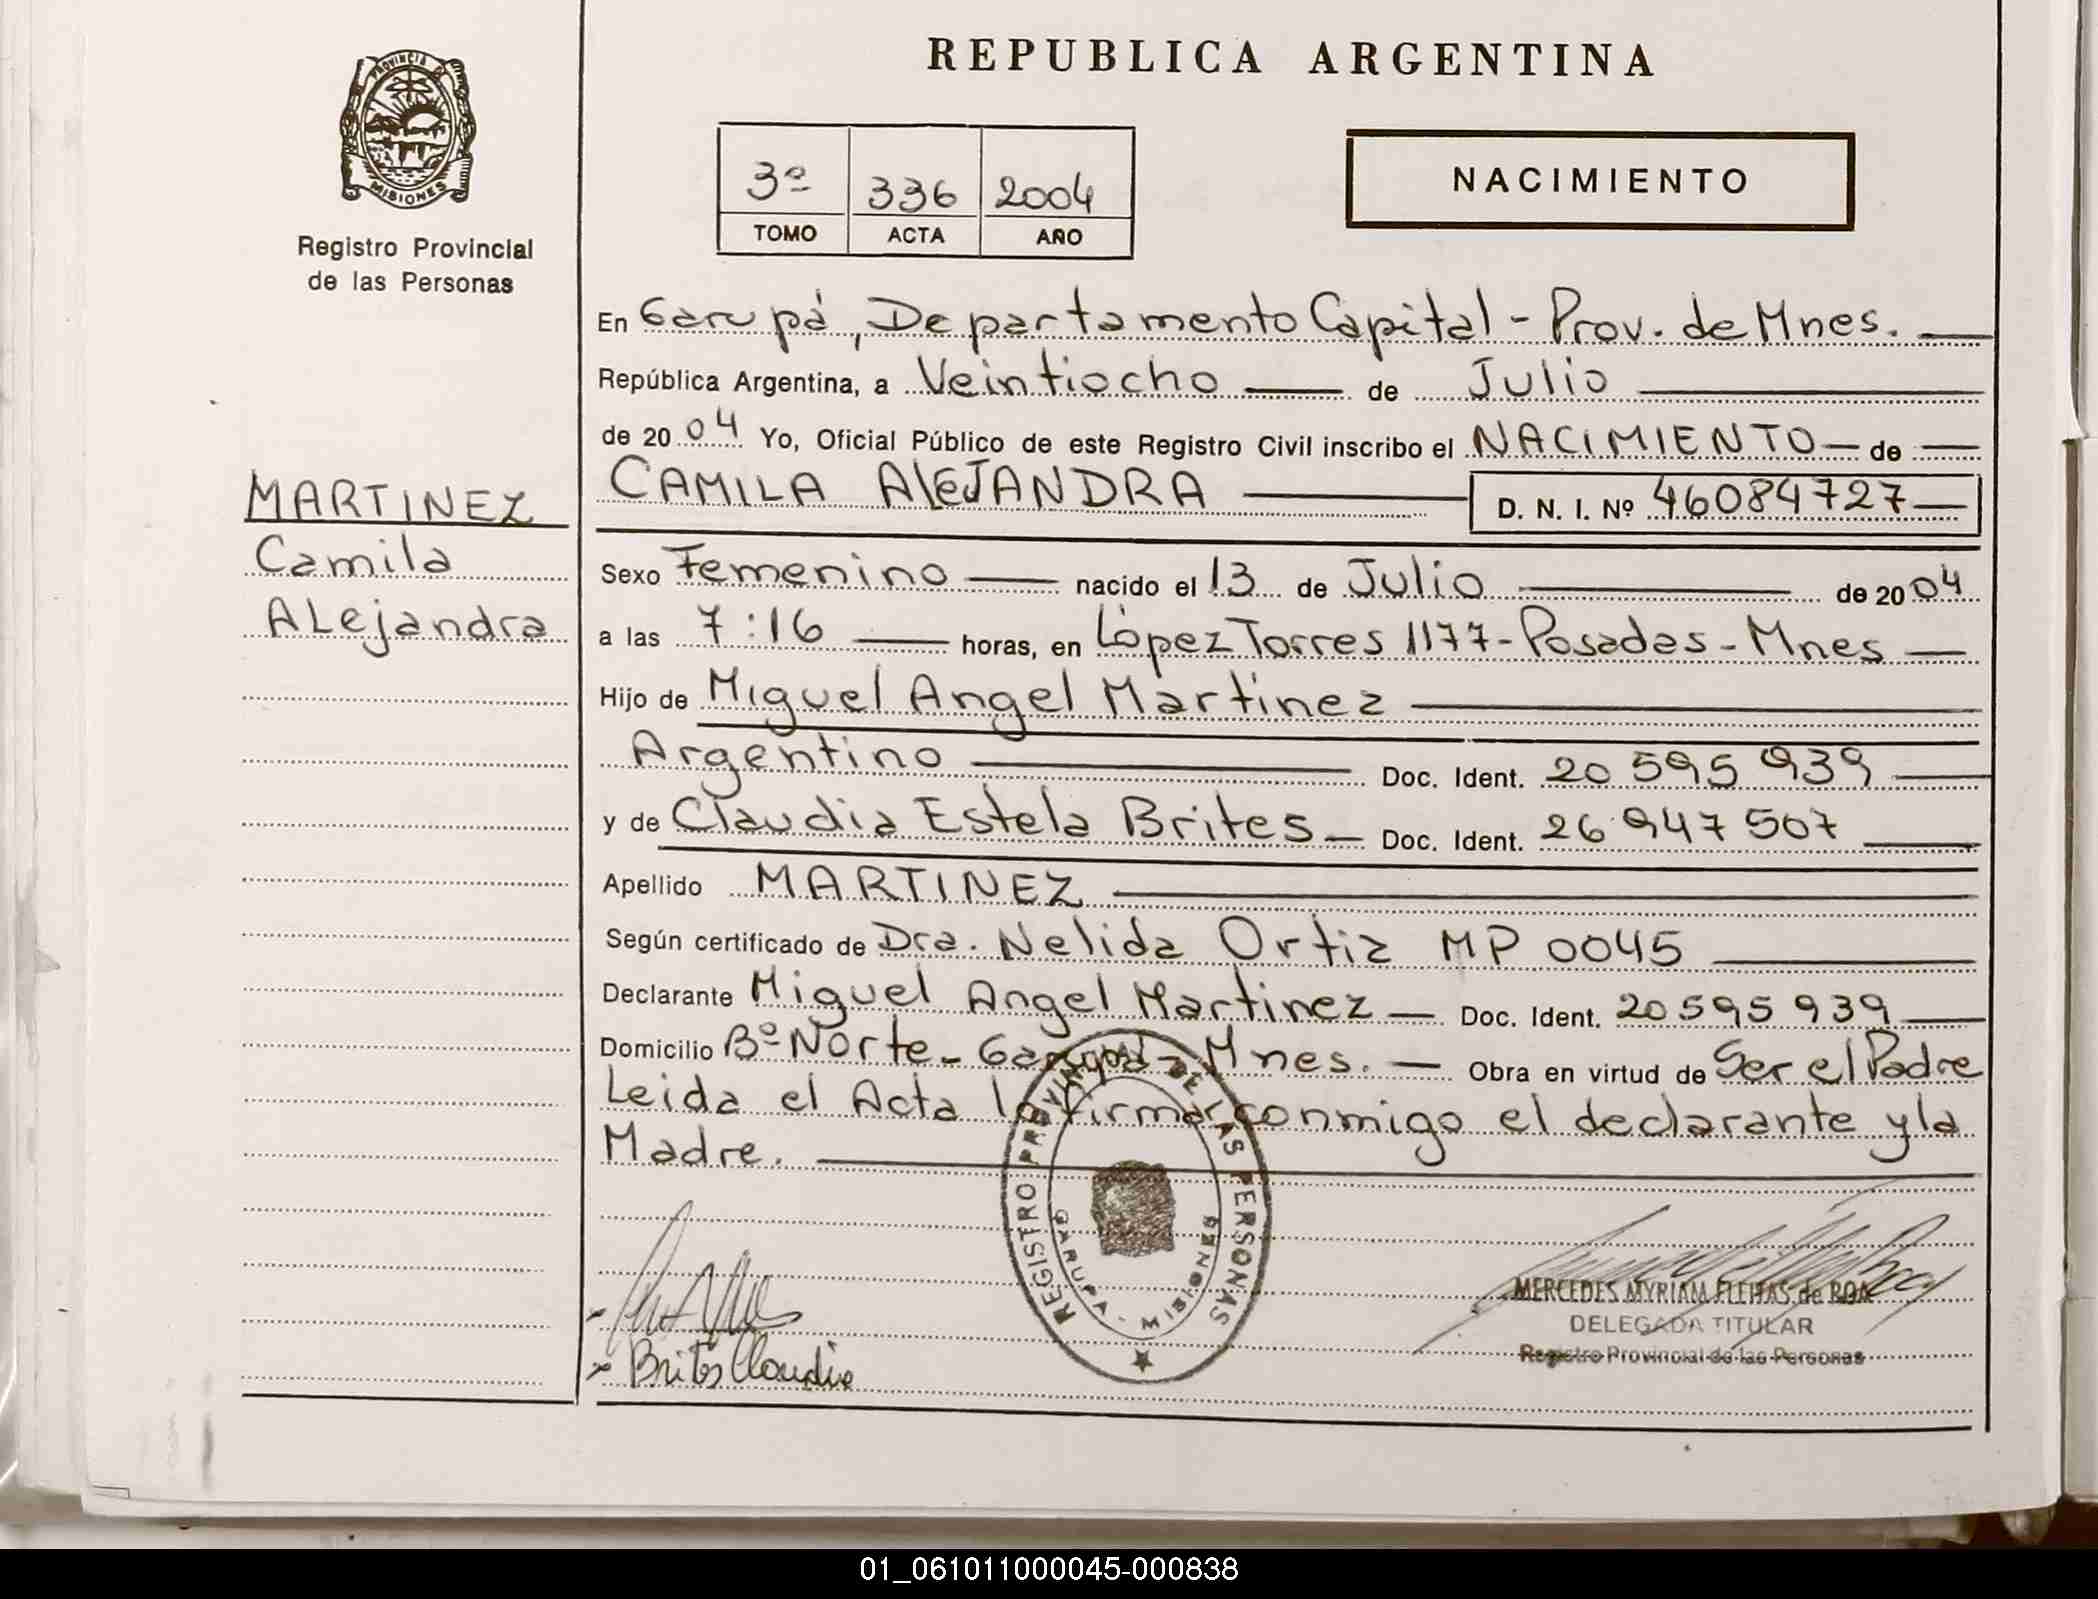 PROVINCIA DE
MISIONES
Registro Provincial
de las Personas
REPUBLICA ARGENTINA
3º 336 2004
TOMO ACTA AÑO
NACIMIENTO
En Garupá, Departamento Capital - Prov. de Mnes.
República Argentina, a Veintiocho de Julio
de 2004 Yo, Oficial Público de este Registro Civil inscribo el NACIMIENTO de
CAMILA AleJANDRA D. N. I. Nº 46084727
MARTINEZ
Camila
ALejandra
Sexo Femenino nacido el 13 de Julio de 2004
a las 7:16 horas, en López Torres 1177 - Posadas - Mnes
Hijo de Miguel Angel Martinez
Argentino Doc. Ident. 20 595 939
y de Claudia Estela Brites Doc. Ident. 26 947 507
Apellido MARTINEZ
Según certificado de Dra. Nelida Ortiz MP 0045
Declarante Miguel Angel Martinez Doc. Ident. 20 595 939
Domicilio Bº Norte - Garupá - Mnes. Obra en virtud de Ser el Padre
Leida el Acta la firman conmigo el declarante y la
Madre.
REGISTRO PROVINCIAL DE LAS PERSONAS
GARUPA - MISIONES
Brites Claudia
MERCEDES MYRIAM FLEITAS de ROA
DELEGADA TITULAR
Registro Provincial de las Personas
01_061011000045-000838